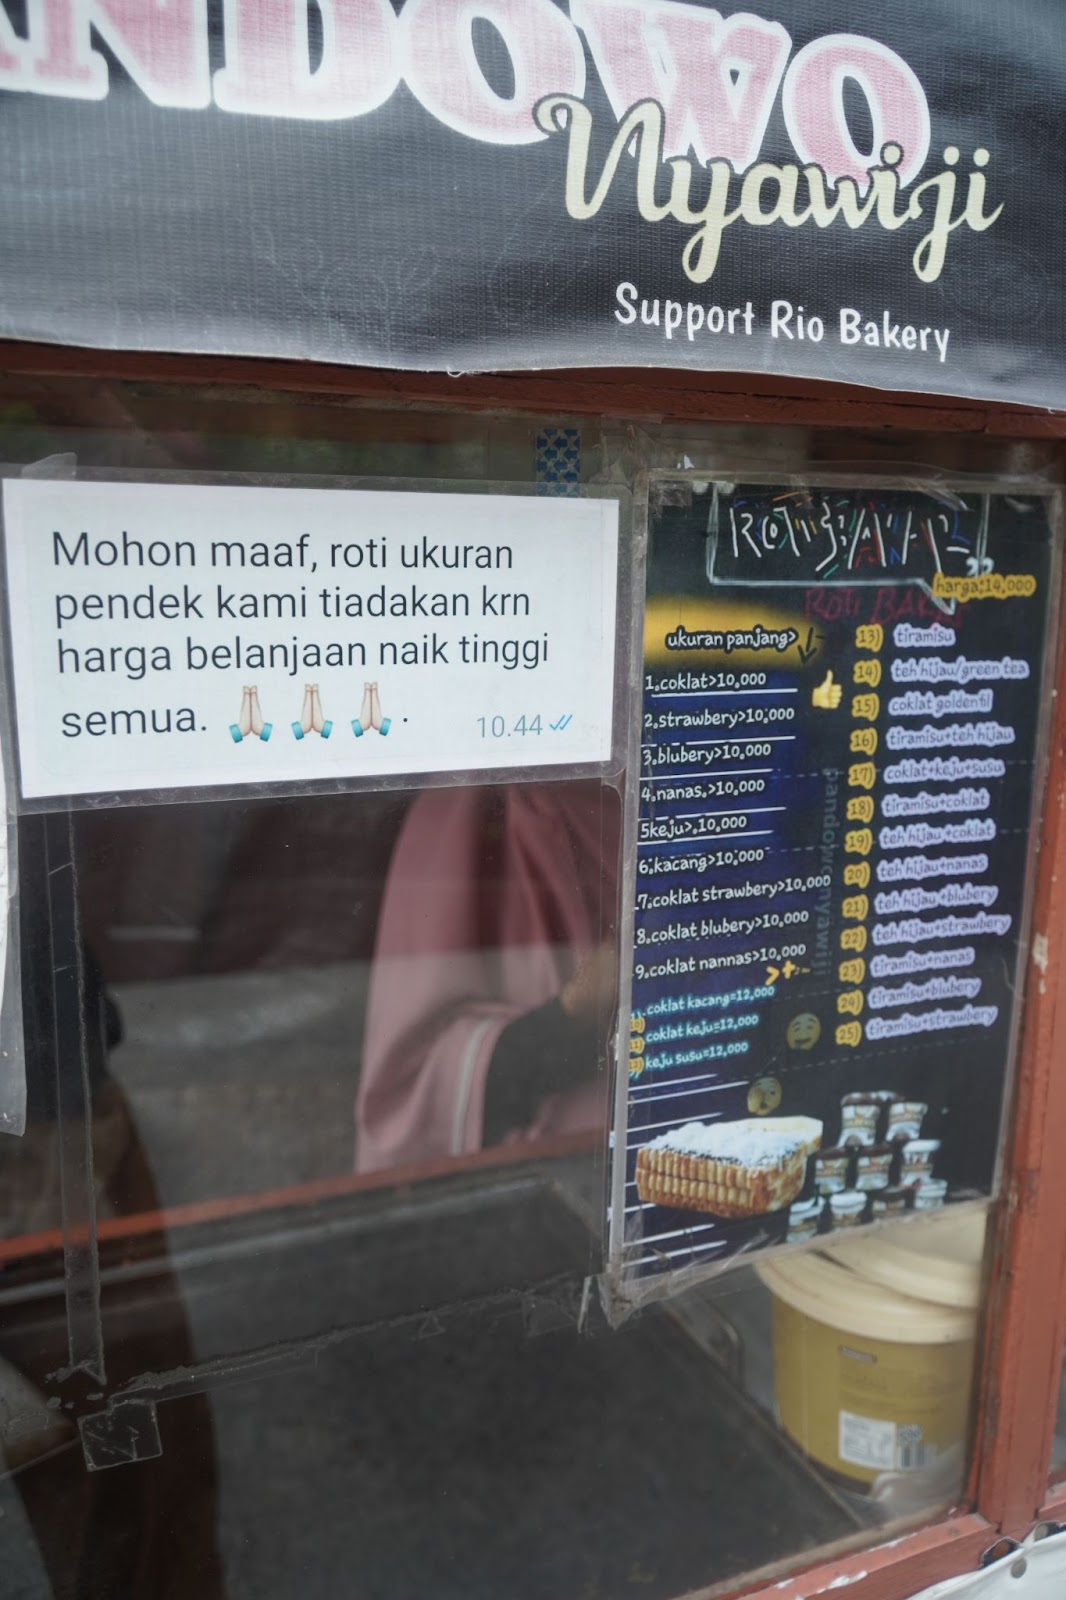 NDOWO
Nyawiji
Support Rio Bakery
Mohon maaf, roti ukuran
pendek kami tiadakan krn
harga belanjaan naik tinggi
semua. 🙏🏻 🙏🏻 🙏🏻 .
10.44
ROTI BAKAR
harga:14,000
ukuran panjang>
1.coklat>10,000
2.strawbery>10,000
3.blubery>10,000
4.nanas.>10,000
5keju>.10,000
6.kacang>10,000
7.coklat strawbery>10,000
8.coklat blubery>10,000
9.coklat nannas>10,000
coklat kacang=12,000
coklat keju=12,000
keju susu=12,000
13) tiramisu
14) teh hijau/green tea
15) coklat goldenfil
16) tiramisu+teh hijau
17) coklat+keju+susu
18) tiramisu+coklat
19) teh hijau +coklat
20) teh hijau+nanas
21) teh hijau +blubery
22) teh hijau+strawbery
23) tiramisu+nanas
24) tiramisu+blubery
25) tiramisu+strawbery